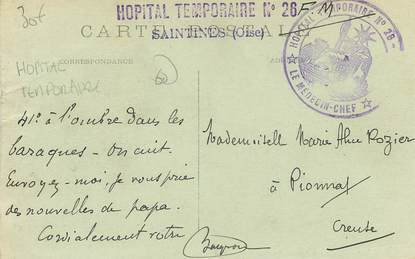 30f
HOPITAL TEMPORAIRE N° 26
F.M
CARTE POSTALE
SAINTINES (Oise)
HOPITAL TEMPORAIRE N° 26
LE MÉDECIN-CHEF
CORRESPONDANCE
HOPITAL
TEMPORAIRE
60
41° à l'ombre dans les
baraques - on cuit.
Envoyez-moi, je vous prie
des nouvelles de papa.
Cordialement votre
Mademoiselle Marie Pozier
à Pionnat
Creuse